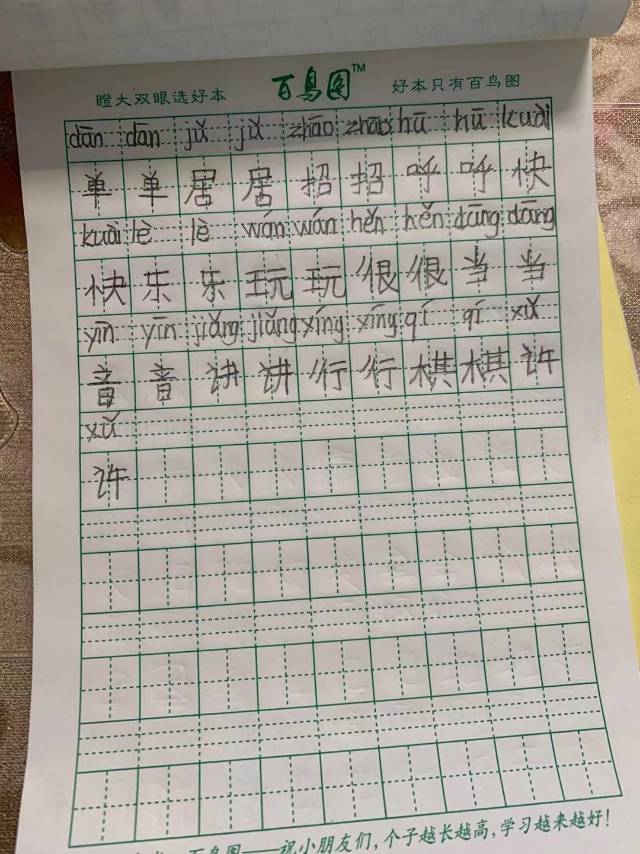 瞪大双眼选好本 百鸟图™ 好本只有百鸟图
dān dān jū jū zhāo zhāo hū hū kuài
单 单 居 居 招 招 呼 呼 快
kuài lè lè wán wán hěn hěn dāng dāng
快 乐 乐 玩 玩 很 很 当 当
yīn yīn jiǎng jiǎng xíng xíng qí qí xǔ
音 音 讲 讲 行 行 棋 棋 许
xǔ
许
百鸟图——祝小朋友们，个子越长越高，学习越来越好！